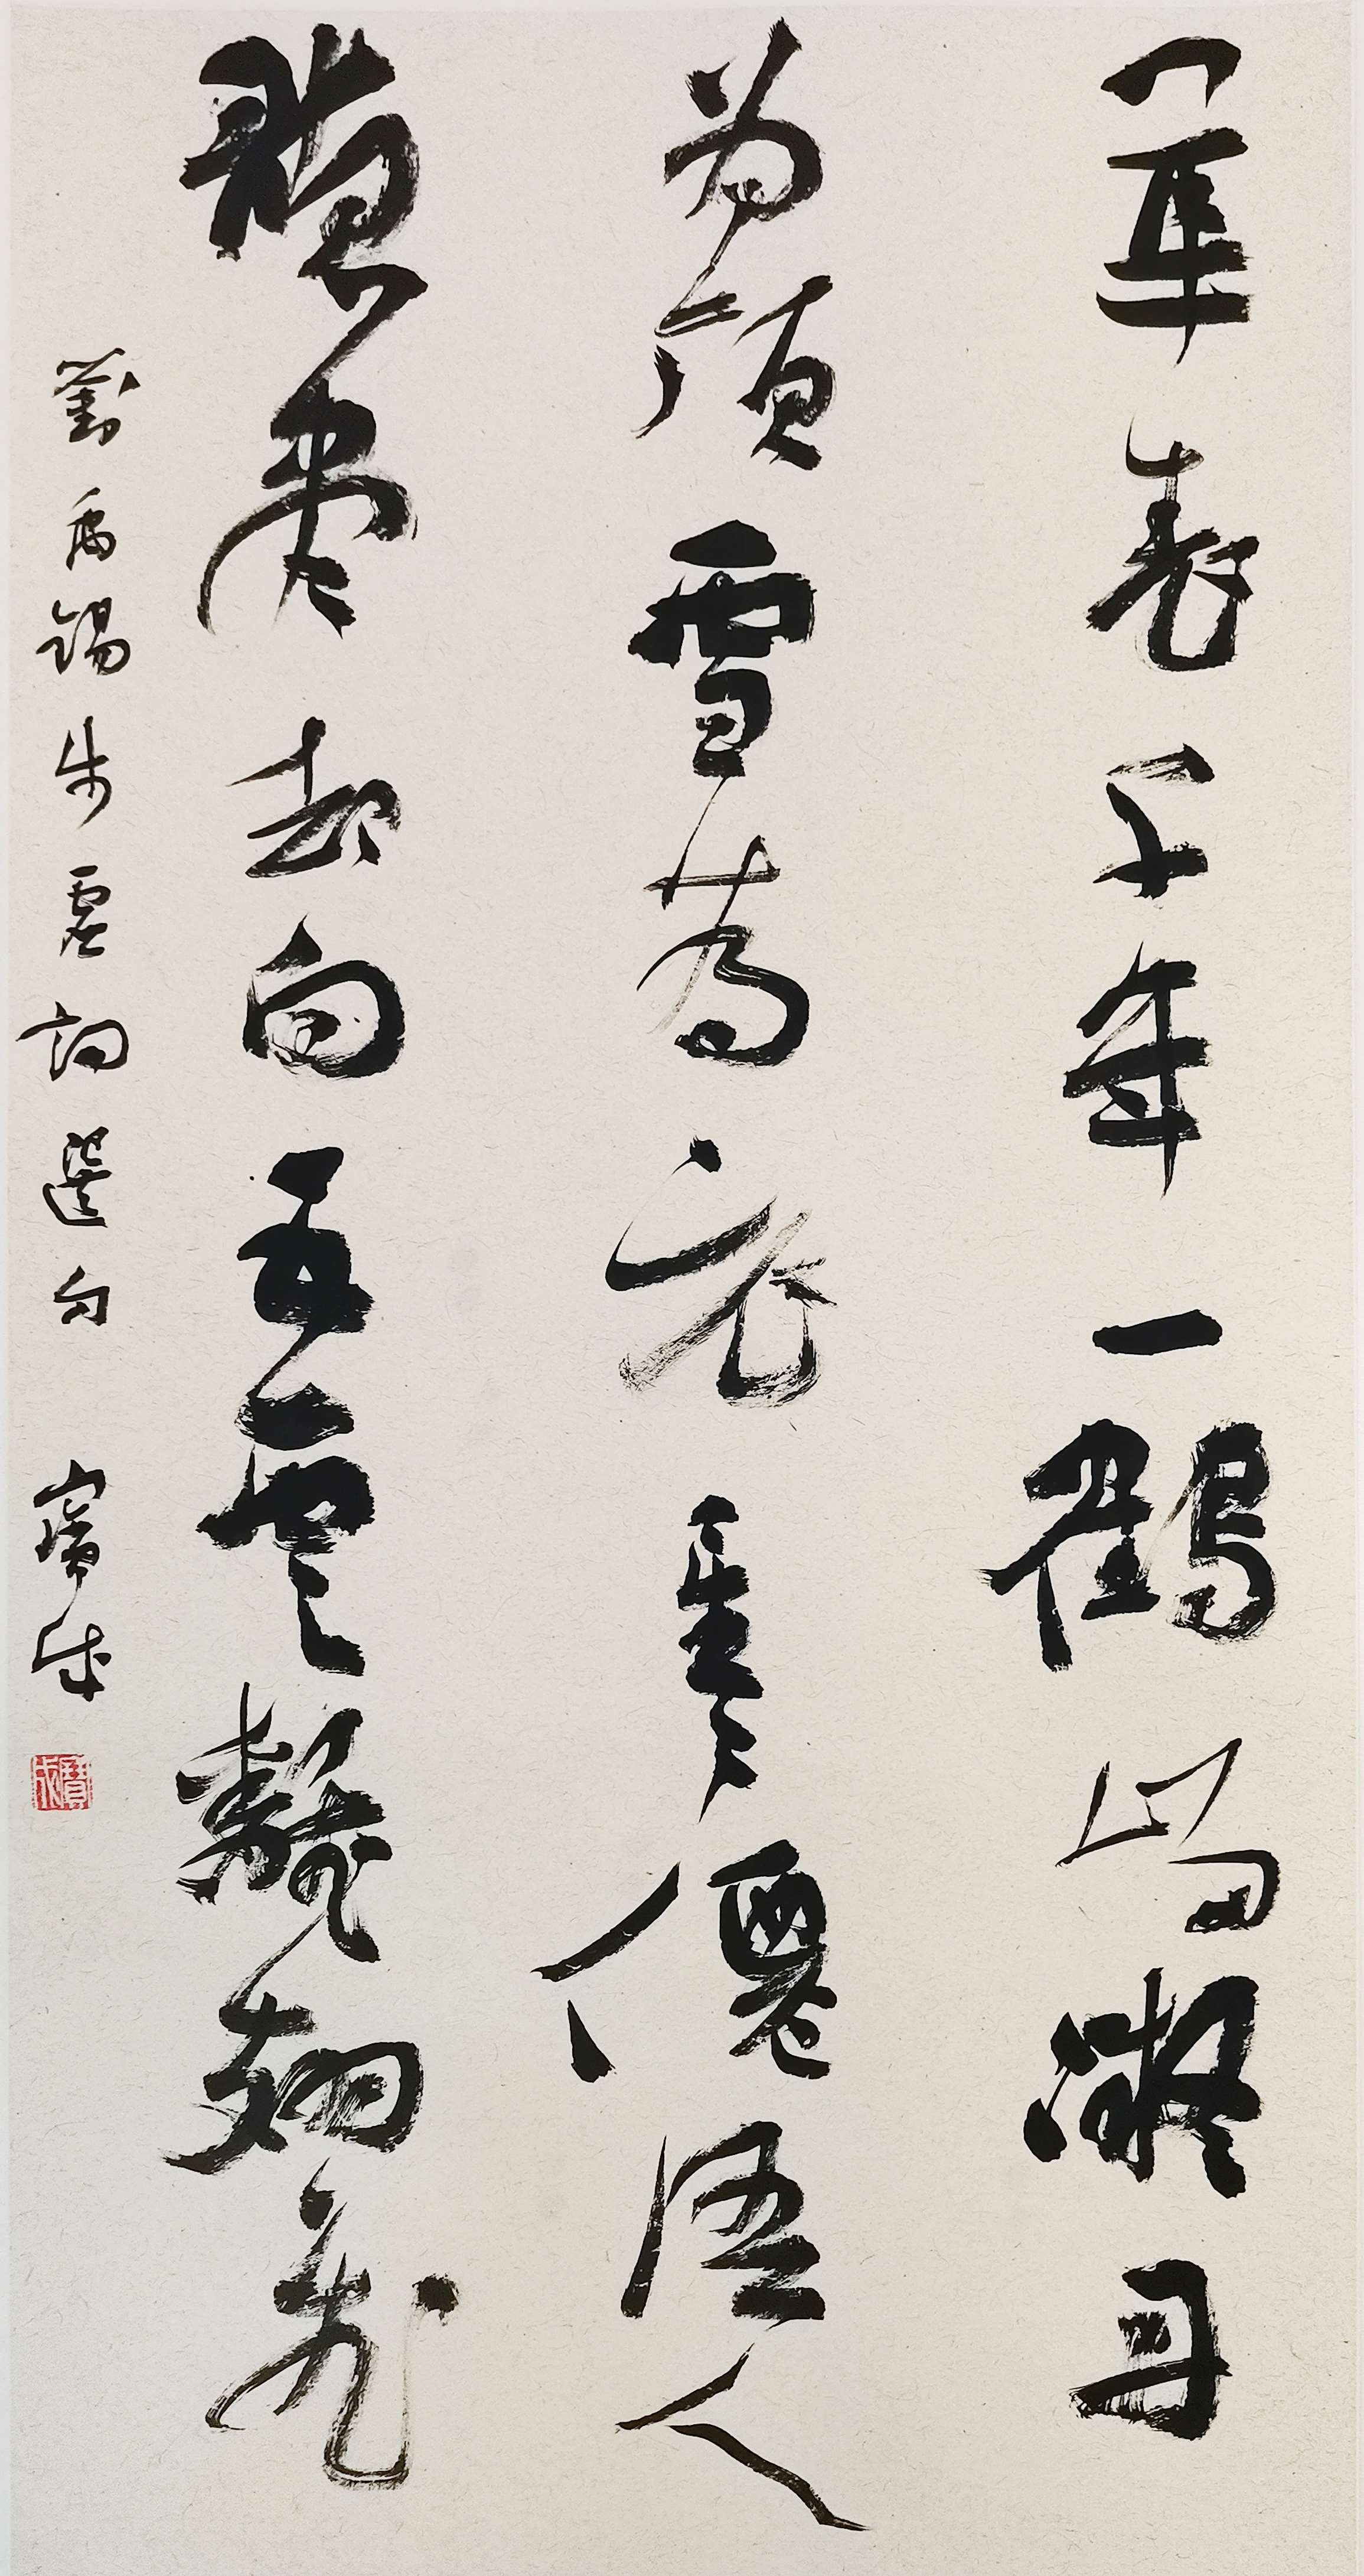 華表千年一鶴歸凝丹
為頂雪為衣星星僊語人
聽盡却向五雲翻翅飛
劉禹錫步虛詞選句 寶成
寶成